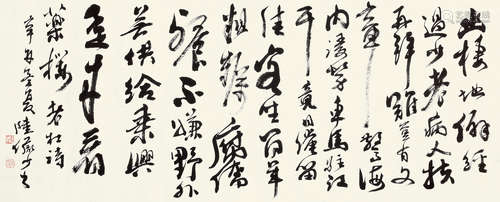 幽棲地僻經
過少老病人扶
再拜難豈有文
章驚海
內謾勞車馬駐江
干竟日淹留
佳客坐百年
粗糲腐儒
餐不嫌野外
無供給乘興
還來看
藥欄老杜詩
辛夏陸儼少書